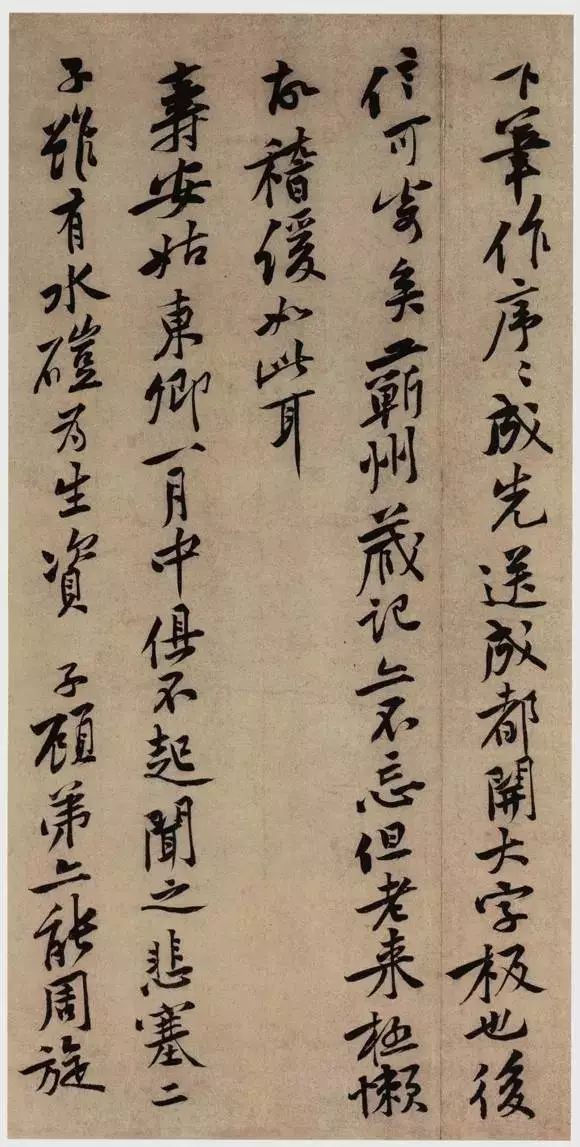 下筆作序〻成先送成都開大字板也後
信可寄矣王蘄州蔵記亦不忘但老来極懶
故稽緩如此耳
壽安姑東卿一月中俱不起聞之悲塞二
子雖有水磑为生資 子顧弟亦能周旋